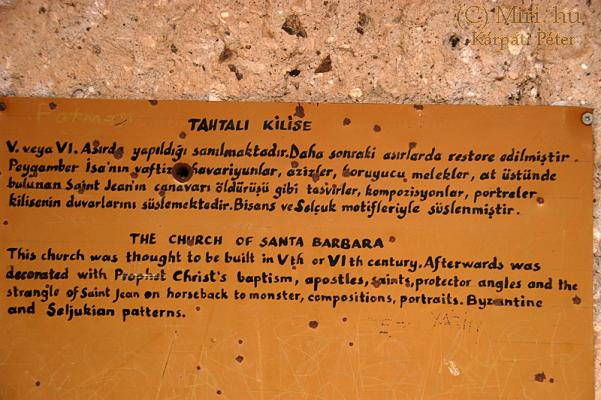 (C) Miri.hu
Kárpáti Péter
TAHTALI KİLİSE
V. veya VI. Asırda yapıldığı sanılmaktadır. Daha sonraki asırlarda restore edilmiştir.
Peygamber İsa'nın vaftizi havariyunlar, azizler, koruyucu melekler, at üstünde
bulunan Saint Jean'in canavarı öldürüşü gibi tasvirler, kompozisyonlar, portreler
kilisenin duvarlarını süslemektedir. Bisans ve Selçuk motifleriyle süslenmiştir.
THE CHURCH OF SANTA BARBARA
This church was thought to be built in Vth or VIth century. Afterwards was
decorated with Prophet Christ's baptism, apostles, saints, protector angles and the
strangle of Saint Jean on horseback to monster, compositions, portraits. Byzantine
and Seljukian patterns.